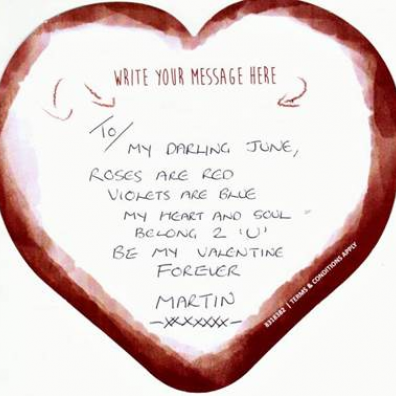 WRITE YOUR MESSAGE HERE
TO/
MY DARLING JUNE,
ROSES ARE RED
VIOLETS ARE BLUE
MY HEART AND SOUL
BELONG 2 'U'
BE MY VALENTINE
FOREVER
MARTIN
-XXXXXX-
8318382 | TERMS & CONDITIONS APPLY